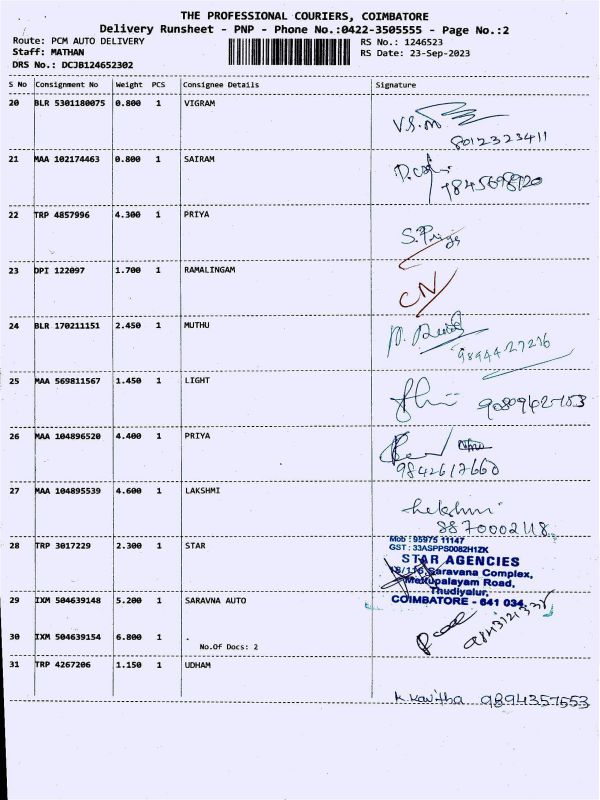 THE PROFESSIONAL COURIERS, COIMBATORE
Delivery Runsheet - PNP - Phone No.:0422-3505555 - Page No.:2
Route: PCM AUTO DELIVERY RS No.: 1246523
Staff: MATHAN RS Date: 23-Sep-2023
DRS No.: DCJB124652302
S No Consignment No Weight PCS Consignee Details Signature
20 BLR 5301180075 0.800 1 VIGRAM
8012323411
21 MAA 102174463 0.800 1 SAIRAM
22 TRP 4857996 4.300 1 PRIYA
S. Priya
23 DPI 122097 1.700 1 RAMALINGAM
CN
24 BLR 170211151 2.450 1 MUTHU
9894427216
25 MAA 569811567 1.450 1 LIGHT
26 MAA 104896520 4.400 1 PRIYA
9842617660
27 MAA 104895539 4.600 1 LAKSHMI
Lekshmi
8870002118
28 TRP 3017229 2.300 1 STAR
Mob : 95975 11147
GST : 33ASPPS0082H1ZK
STAR AGENCIES
Saravana Complex,
Mettupalayam Road,
Thudiyalur,
COIMBATORE - 641 034.
29 IXM 504639148 5.200 1 SARAVNA AUTO
30 IXM 504639154 6.800 1 .
No.Of Docs: 2
31 TRP 4267206 1.150 1 UDHAM
K. Kavitha 9894357553